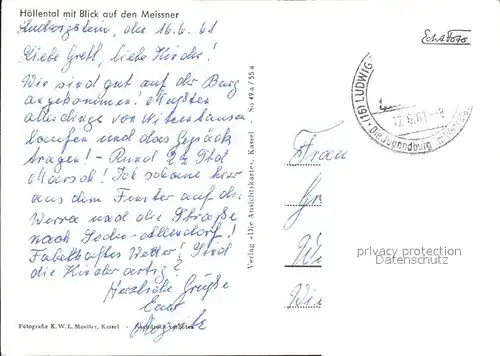 Höllental mit Blick auf den Meissner
Ludwigstein, den 16.6.61
Liebe Gretl, liebe Kinder!
Wir sind gut auf der Burg
angekommen! Mußten
allerdings von Witzenhausen
laufen und das Gepäck
tragen! - Rund 2½ Std
Marsch! Ich schaue hier
aus dem Fenster auf die
Werra und die Straße
nach Soden-Allendorf!
Fabelhaftes Wetter! Sind
die Kinder artig?
Herzliche Grüße
Fotografie K. W. L. Mueller, Kassel - Nachdruck verboten
Verlag »Die Ansichtskarte«, Kassel So 49a / 55a
Echt Foto
(16) LUDWIG-
17.6.61-8
Die Jugendburg
Frau
privacy protection
Datenschutz